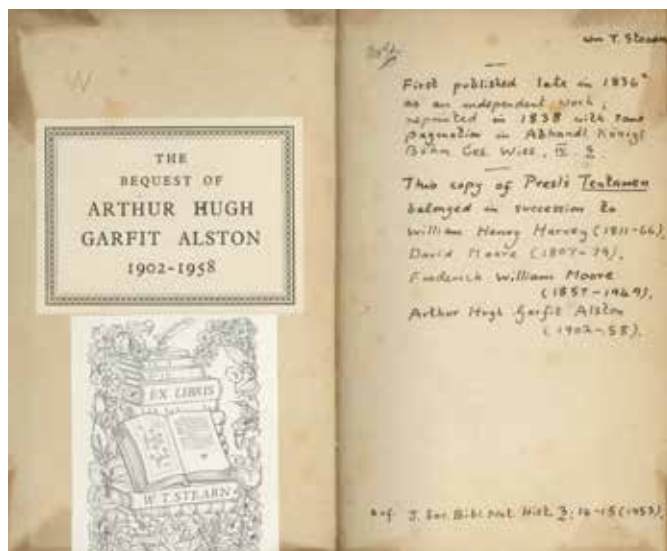 W
THE
BEQUEST OF
ARTHUR HUGH
GARFIT ALSTON
1902-1958
EX LIBRIS
W. T. STEARN
Wm T. Stearn
First published late in 1836
as an independent work,
reprinted in 1838 with same
pagination in Abhandl. Königl
Böhm Ges. Wiss., IV.
This copy of Presl's Tentamen
belonged in succession to
William Henry Harvey (1811-66),
David Moore (1807-79),
Frederick William Moore
(1857-1949),
Arthur Hugh Garfit Alston
(1902-58).
J. Soc. Bibl. Nat. Hist. 3: 14-15 (1953).